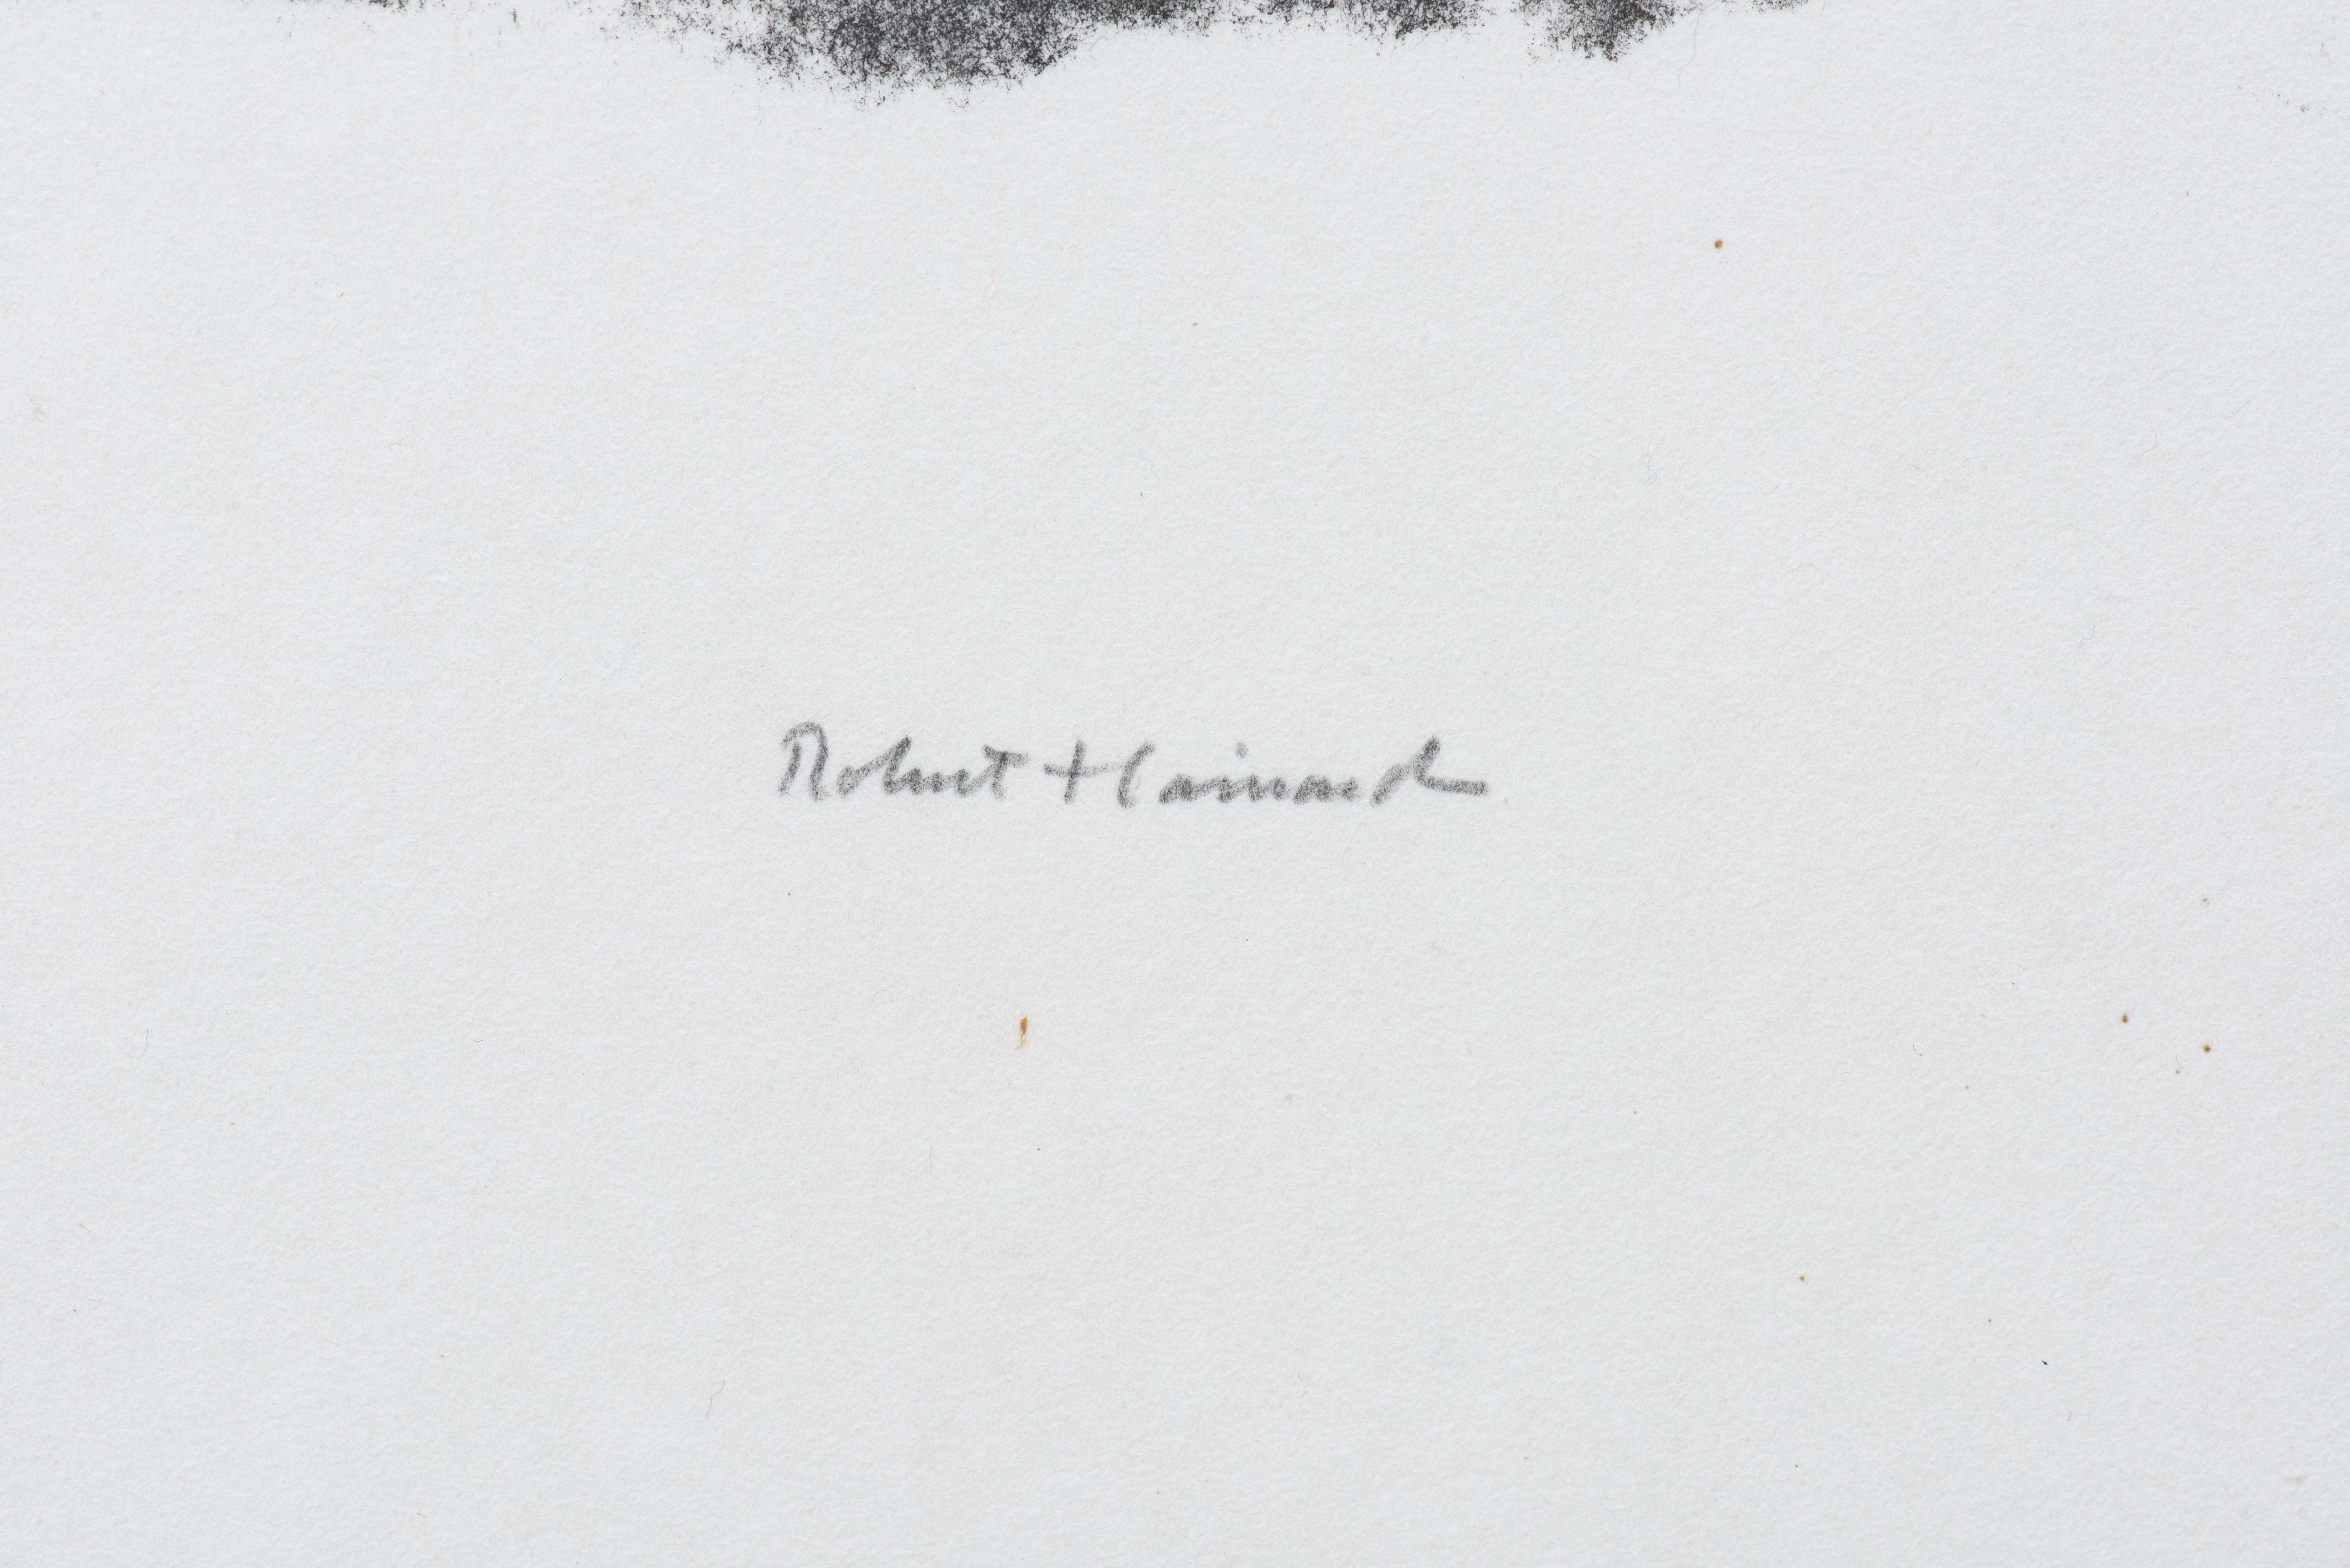 Robert Hainard